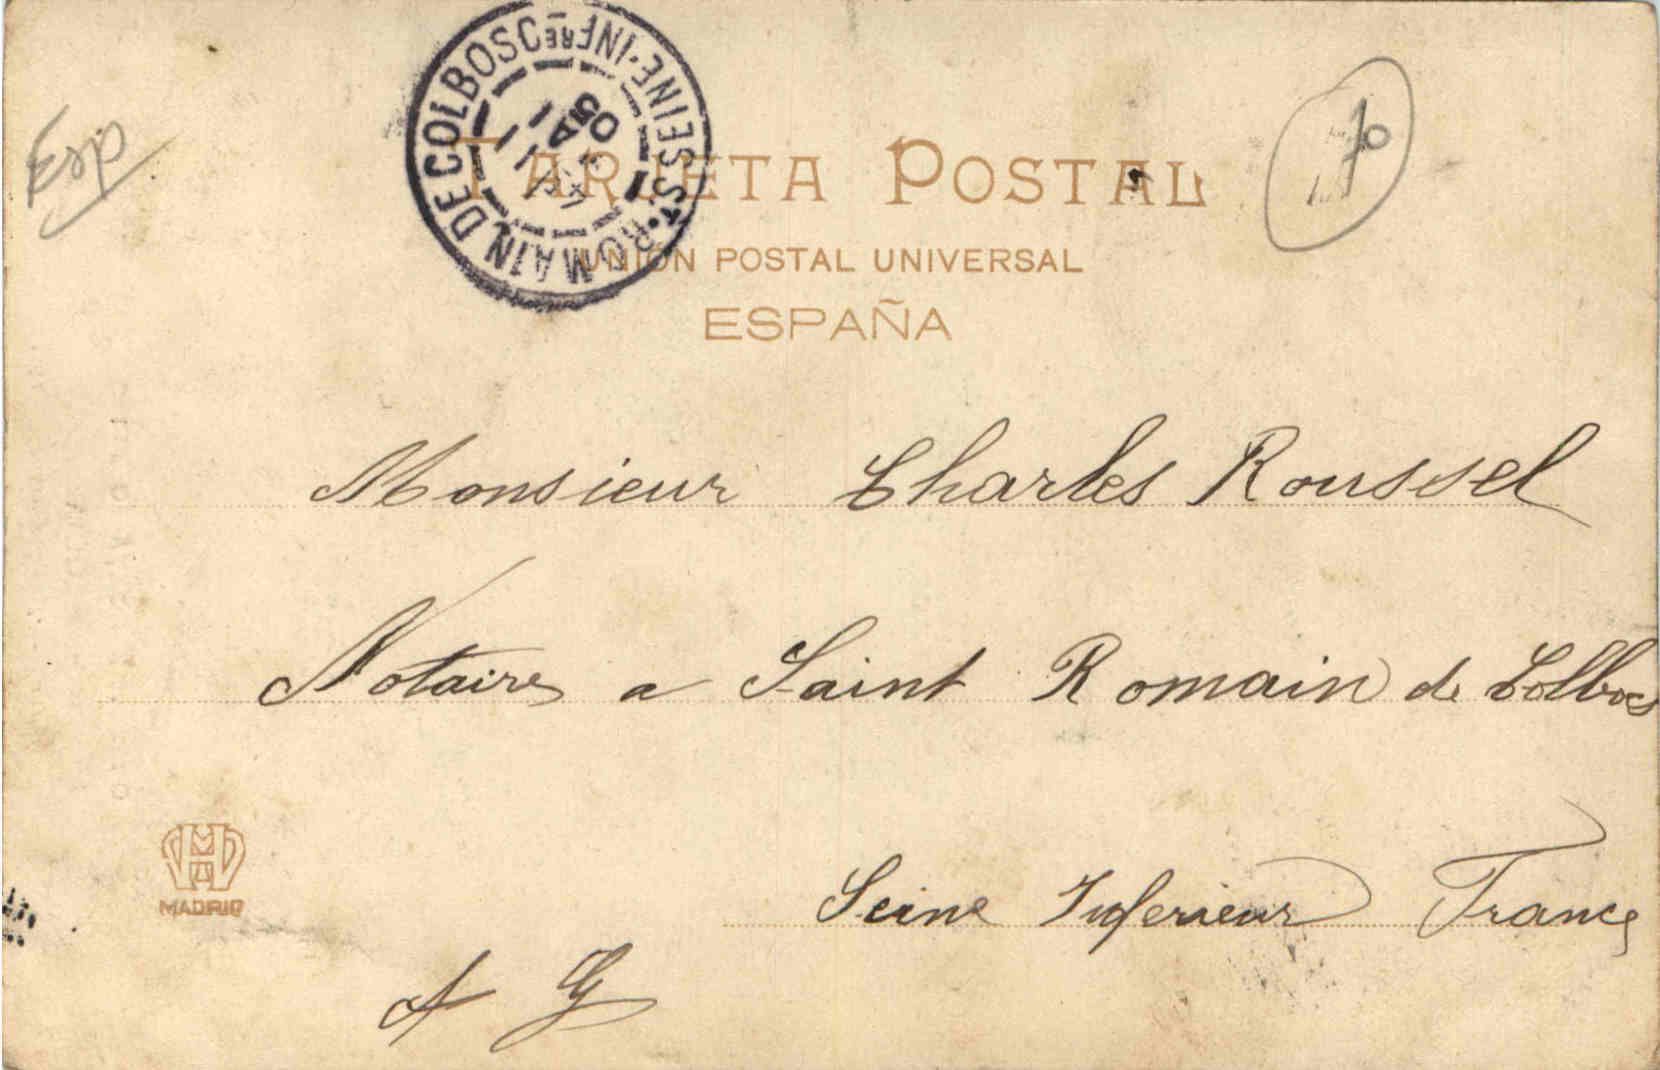 Esp
ST ROMAIN DE COLBOSC SEINE-INFRE
05
TARJETA POSTAL
UNIÓN POSTAL UNIVERSAL
ESPAÑA
Monsieur Charles Roussel
Notaire a Saint Romain de Colbosc
Seine Inferieur France
MADRID
A G